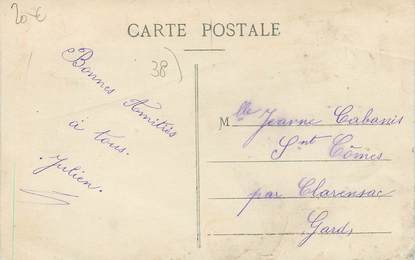 20€
CARTE POSTALE
38)
Bonnes Amitiés
à tous.
Julien.
Mlle Jeanne Cabanis
Snt Cômes
par Clarensac
Gard,